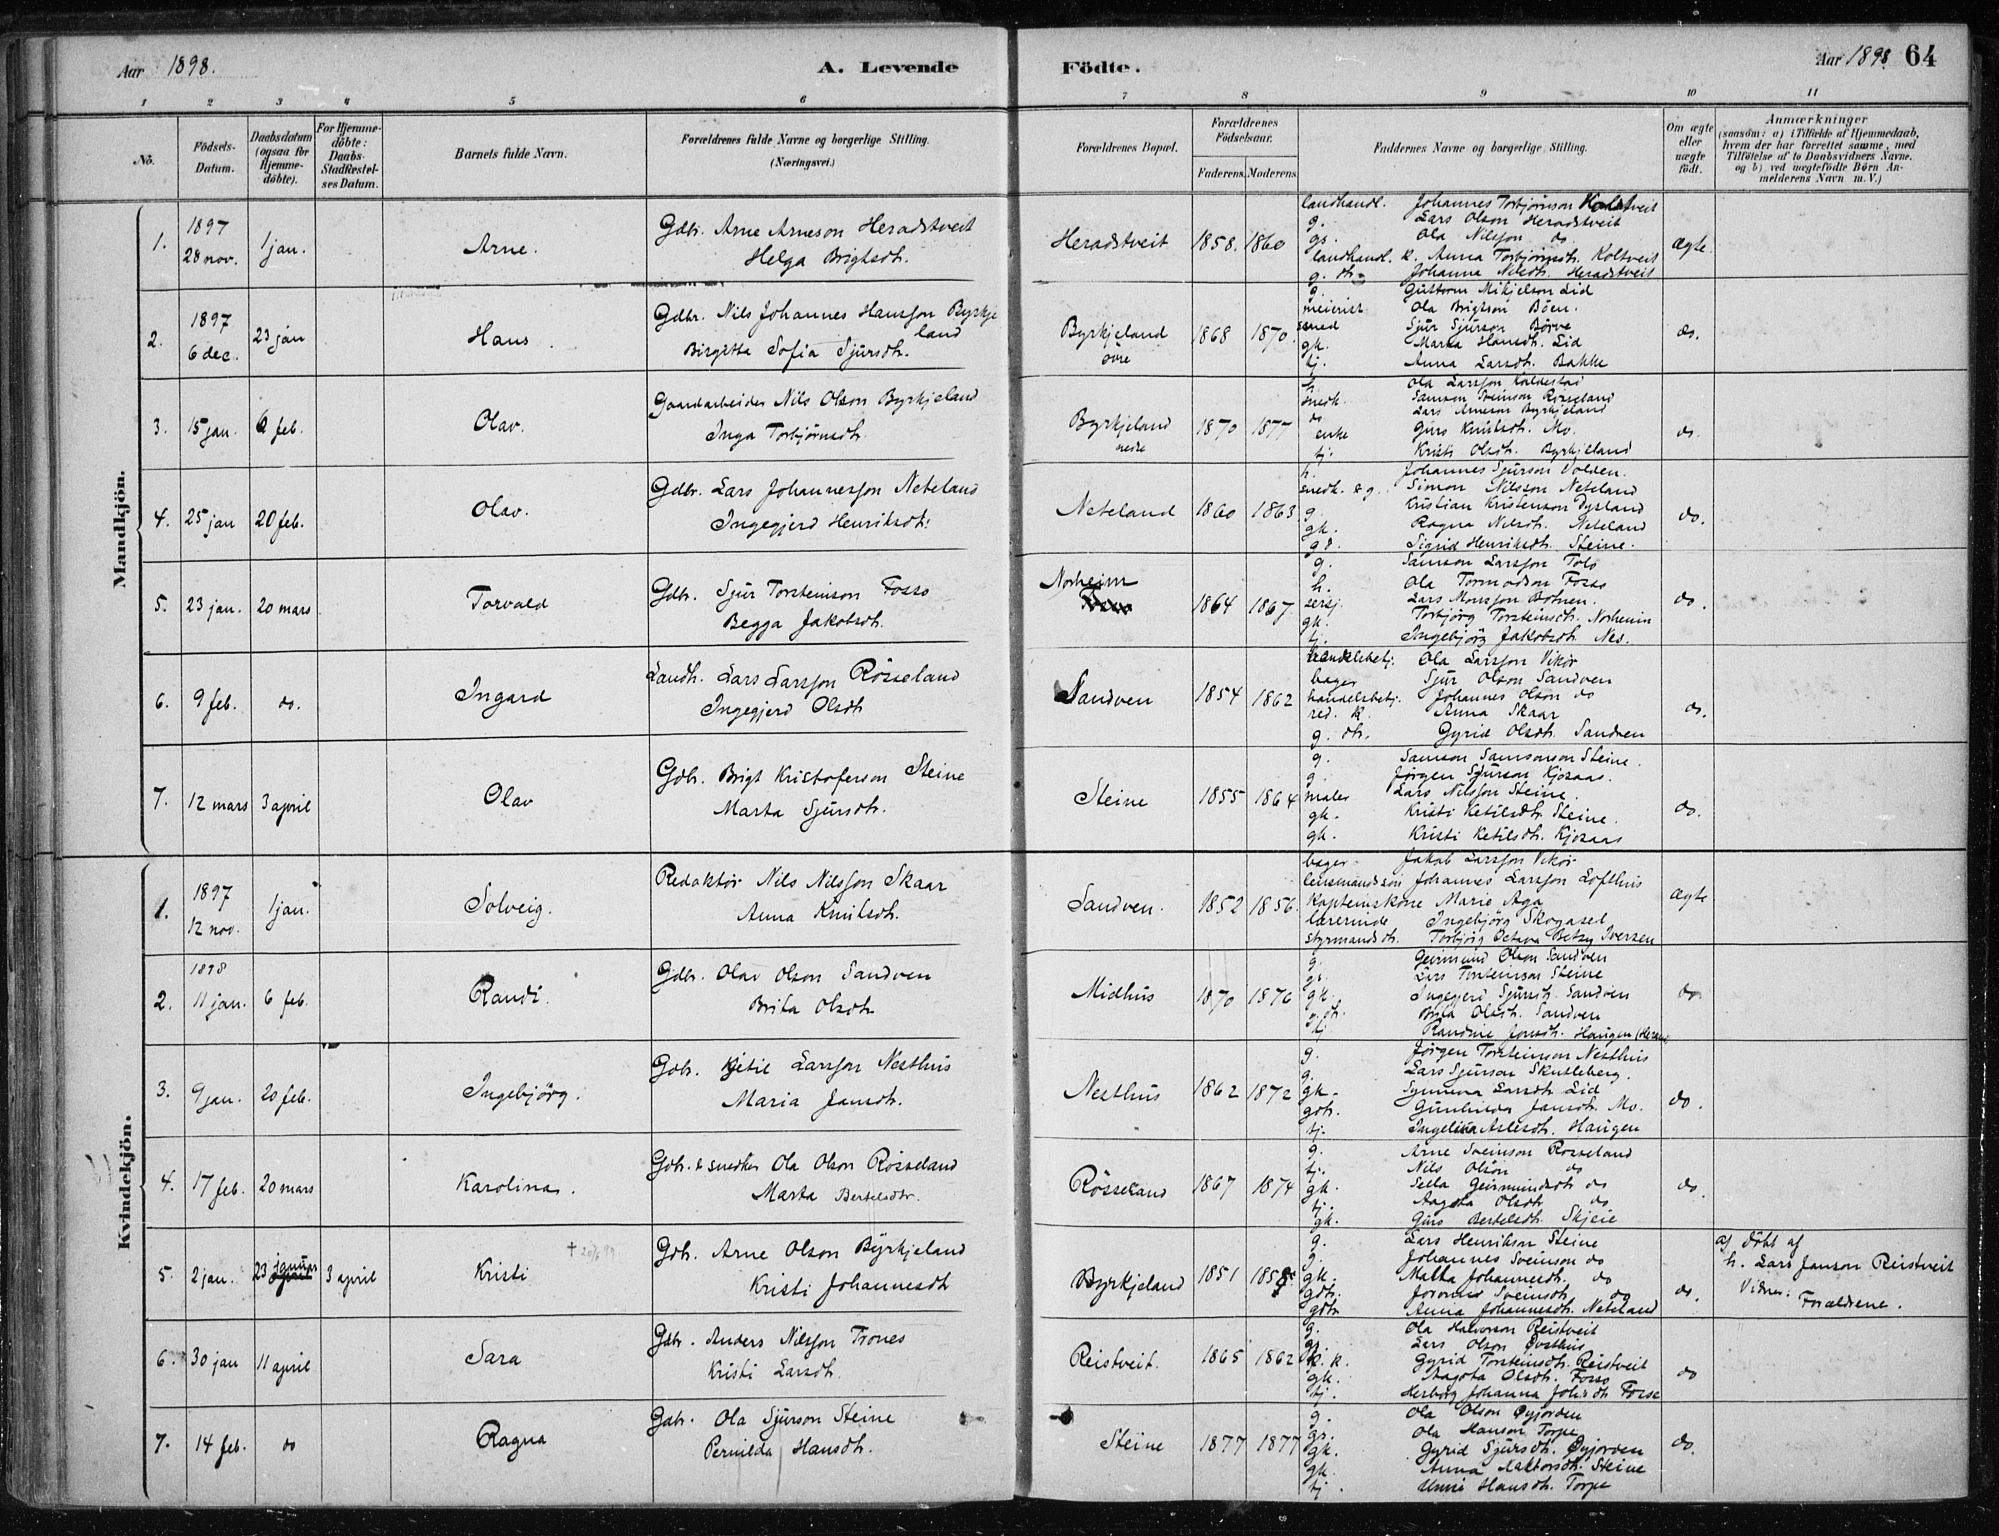 Aar 1898.
A. Levende
Födte.
Aar 1898. 64
1 2 3 4 5 6 7 8 9 10 11
No.
Födsels-Datum.
Daabsdatum (ogsaa for Hjemme-döbte).
For Hjemme-döbte: Daabs-Stadfæstel-ses Datum.
Barnets fulde Navn.
Forældrenes fulde Navne og borgerlige Stilling.
(Næringsvei.)
Forældrenes Bopæl.
Forældrenes Födselsaar.
Faderens. Moderens.
Faddernes Navne og borgerlige Stilling.
Om ægte eller uægte födt.
Anmærkninger
(saasom: a) i Tilfælde af Hjemmedaab, hvem der har forrettet samme, med Tilföielse af to Daabsvidners Navne, og b) ved uægtefödte Börn An-melderens Navn m. V.)
Mandkjön.
1. 1897 28 nov. 1 jan. Arne.
Gdbr. Arne Arneson Heradstveit
Helga Brigtsdtr.
Heradstveit 1858. 1860
landhandl. Johannes Torbjørnson Koltveit
g. Lars Olson Heradstveit
gs. Ola Nilsson do
landhandl. k. Anna Torbjörnsdtr. Koltveit
g. dtr. Johanna Nilsdtr. Heradstveit
ægte.
2. 1897 6 dec. 23 jan Hans.
Gdbr. Nils Johannes Hansson Byrkje
land
Birgitta Sofia Sjursdtr.
Byrkjeland övre 1868 1870.
g. Guttorm Mikjelson Lid
meierist Ola Brigtson Böen.
smed Sjur Sjurson Börve
gk. Marta Hansdtr. Lid
tj. Anna Larsdtr. Bakke
do.
3. 15 jan. 6 feb. Olav.
Gaardarbeider Nils Olson Byrkjeland
Inga Torbjörnsdtr.
Byrkjeland nedre 1870 1877
h. Ola Larsson Kaldestad
snedk. Samson Steinson Rösseland
do Lars Arneson Byrkjeland
enke Guro Knutsdtr. Mo.
tj. Kristi Olsdtr. Byrkjeland
do.
4. 25 jan 20 feb. Olav.
Gdbr. Lars Johannesson Neteland
Ingegjerd Henriksdtr.
Neteland 1860 1863.
h. Johannes Sjurson Volden.
snedk. & g. Simon Nilsson Neteland
g. Kristian Kristenson Dysland
gk. Ragna Nilsdtr. Neteland
gd. Sigrid Henriksdtr. Steine.
do.
5. 23 jan. 20 mars Torvald
Gdbr. Sjur Torsteinson Fosso
Begga Jakobsdtr.
Norheim 1864 1867
g. Samson Larsson Tolo
h. Ola Tormodson Fosso
sersj. Lars Monsson Botnen.
gk. Torbjörg Torsteinsdtr. Norheim
tj. Ingebjörg Jakobsdtr. Nes.
do.
6. 9 feb. do. Ingard
Landh. Lars Larsson Rösseland
Ingegjerd Olsdtr
Sandven 1854 1862
handelsbetj. Ola Larsson Vikör
bager Sjur Olson Sandven
handelsbetj. Johannes Olson do
red. k. Anna Skaar
g. dtr. Gyrid Olsdtr. Sandven
do.
7. 12 mars 3 april Olav
Gdb. Brigt Kristoferson Steine
Marta Sjursdtr.
Steine 1855 1864
g. Samson Samsonson Steine.
g. Jörgen Sjurson Kjosaas.
maler Lars Nilsson Steine.
gk. Kristi Ketilsdtr. Steine.
gk. Kristi Ketilsdtr. Kjosaas
do.
Kvindekjön.
1. 1897 12 nov. 1 jan. Solveig.
Redaktör Nils Nilsson Skaar
Anna Knutsdtr.
Sandven. 1852 1856.
bager Jakob Larsson Vikör
lensmandssön Johannes Larsson Lofthus
Kapteinskone Marie Aga
lærerinde Ingebjörg Skogasel
styrmandsdtr. Torbjörg Octava Betzy Iversen
ægte
2. 1898 11 jan. 6 feb. Randi.
Gdbr. Olav Olson Sandven
Brita Olsdtr
Midhus 1870 1876
g. Geirmund Olson Sandven
gs. Lars Torsteinson Steine
gk. Ingegjerd Sjursdtr. Sandven
g. dtr. Brita Olsdtr. Sandven
tj. Randine Jonsdtr. Haugen
do
3. 9 jan. 20 feb. Ingebjörg.
Gdbr. Kjetil Larsson Nesthus
Maria Jansdtr.
Nesthus 1862 1872
g. Jörgen Torsteinson Nesthus
g. Lars Sjurson Skutleberg.
gk. Synneva Larsdtr Lid
gdtr. Gunhilda Jansdtr. Mo.
tj. Ingelina Aslesdtr. Haugen
do.
4. 17 feb. 20 mars Karolina.
Gdbr. & snedker Ola Olson Rösseland
Marta Bertelsdtr.
Rösseland 1867 1874
g. Arne Sveinson Rösseland
tj. Nils Olson do
gk. Sella Geirmundsdtr do
tj. Aagota Olsdtr do
gk. Guro Bertelsdtr. Skjeie
do.
5. 2 jan. 23 januar 3 april Kristi
† 20/6 99
Gdb. Arne Olson Byrkjeland
Kristi Johannesdtr
Byrkjeland 1851 1858
g. Lars Henrikson Steine
g. Johannes Sveinson do
gk. Malta Johannesdtr. do
gdtr. Joronn Sveinsdtr do
gdtr Anna Johannesdtr. Neteland
do.
a) döbt af
h. Lars Janson Reistveit
Vidner:
Forældrene.
6. 30 jan 11 april Sara
Gdbr. Anders Nilsson Trones
Kristi Larsdtr.
Reistveit. 1865 1862
g. Ola Halvorson Reistveit
gs. Lars Olson Östhus
k. k. Gyrid Torsteinsdtr. Reistveit
gk. Aagota Olsdtr. Fosso
tj. Herborg Johanna Johsdtr Fosse
do
7. 14 feb. do Ragna
Gdbr. Ola Sjurson Steine
Pernilda Hansdtr.
Steine 1877 1877
g. Ola Olson Öyjorden
gs. Ola Hanson Torpe
gk. Gyrid Sjursdtr. Öyjorden
gk. Anna Steine
tj. Unni Hansdtr. Torpe
do.